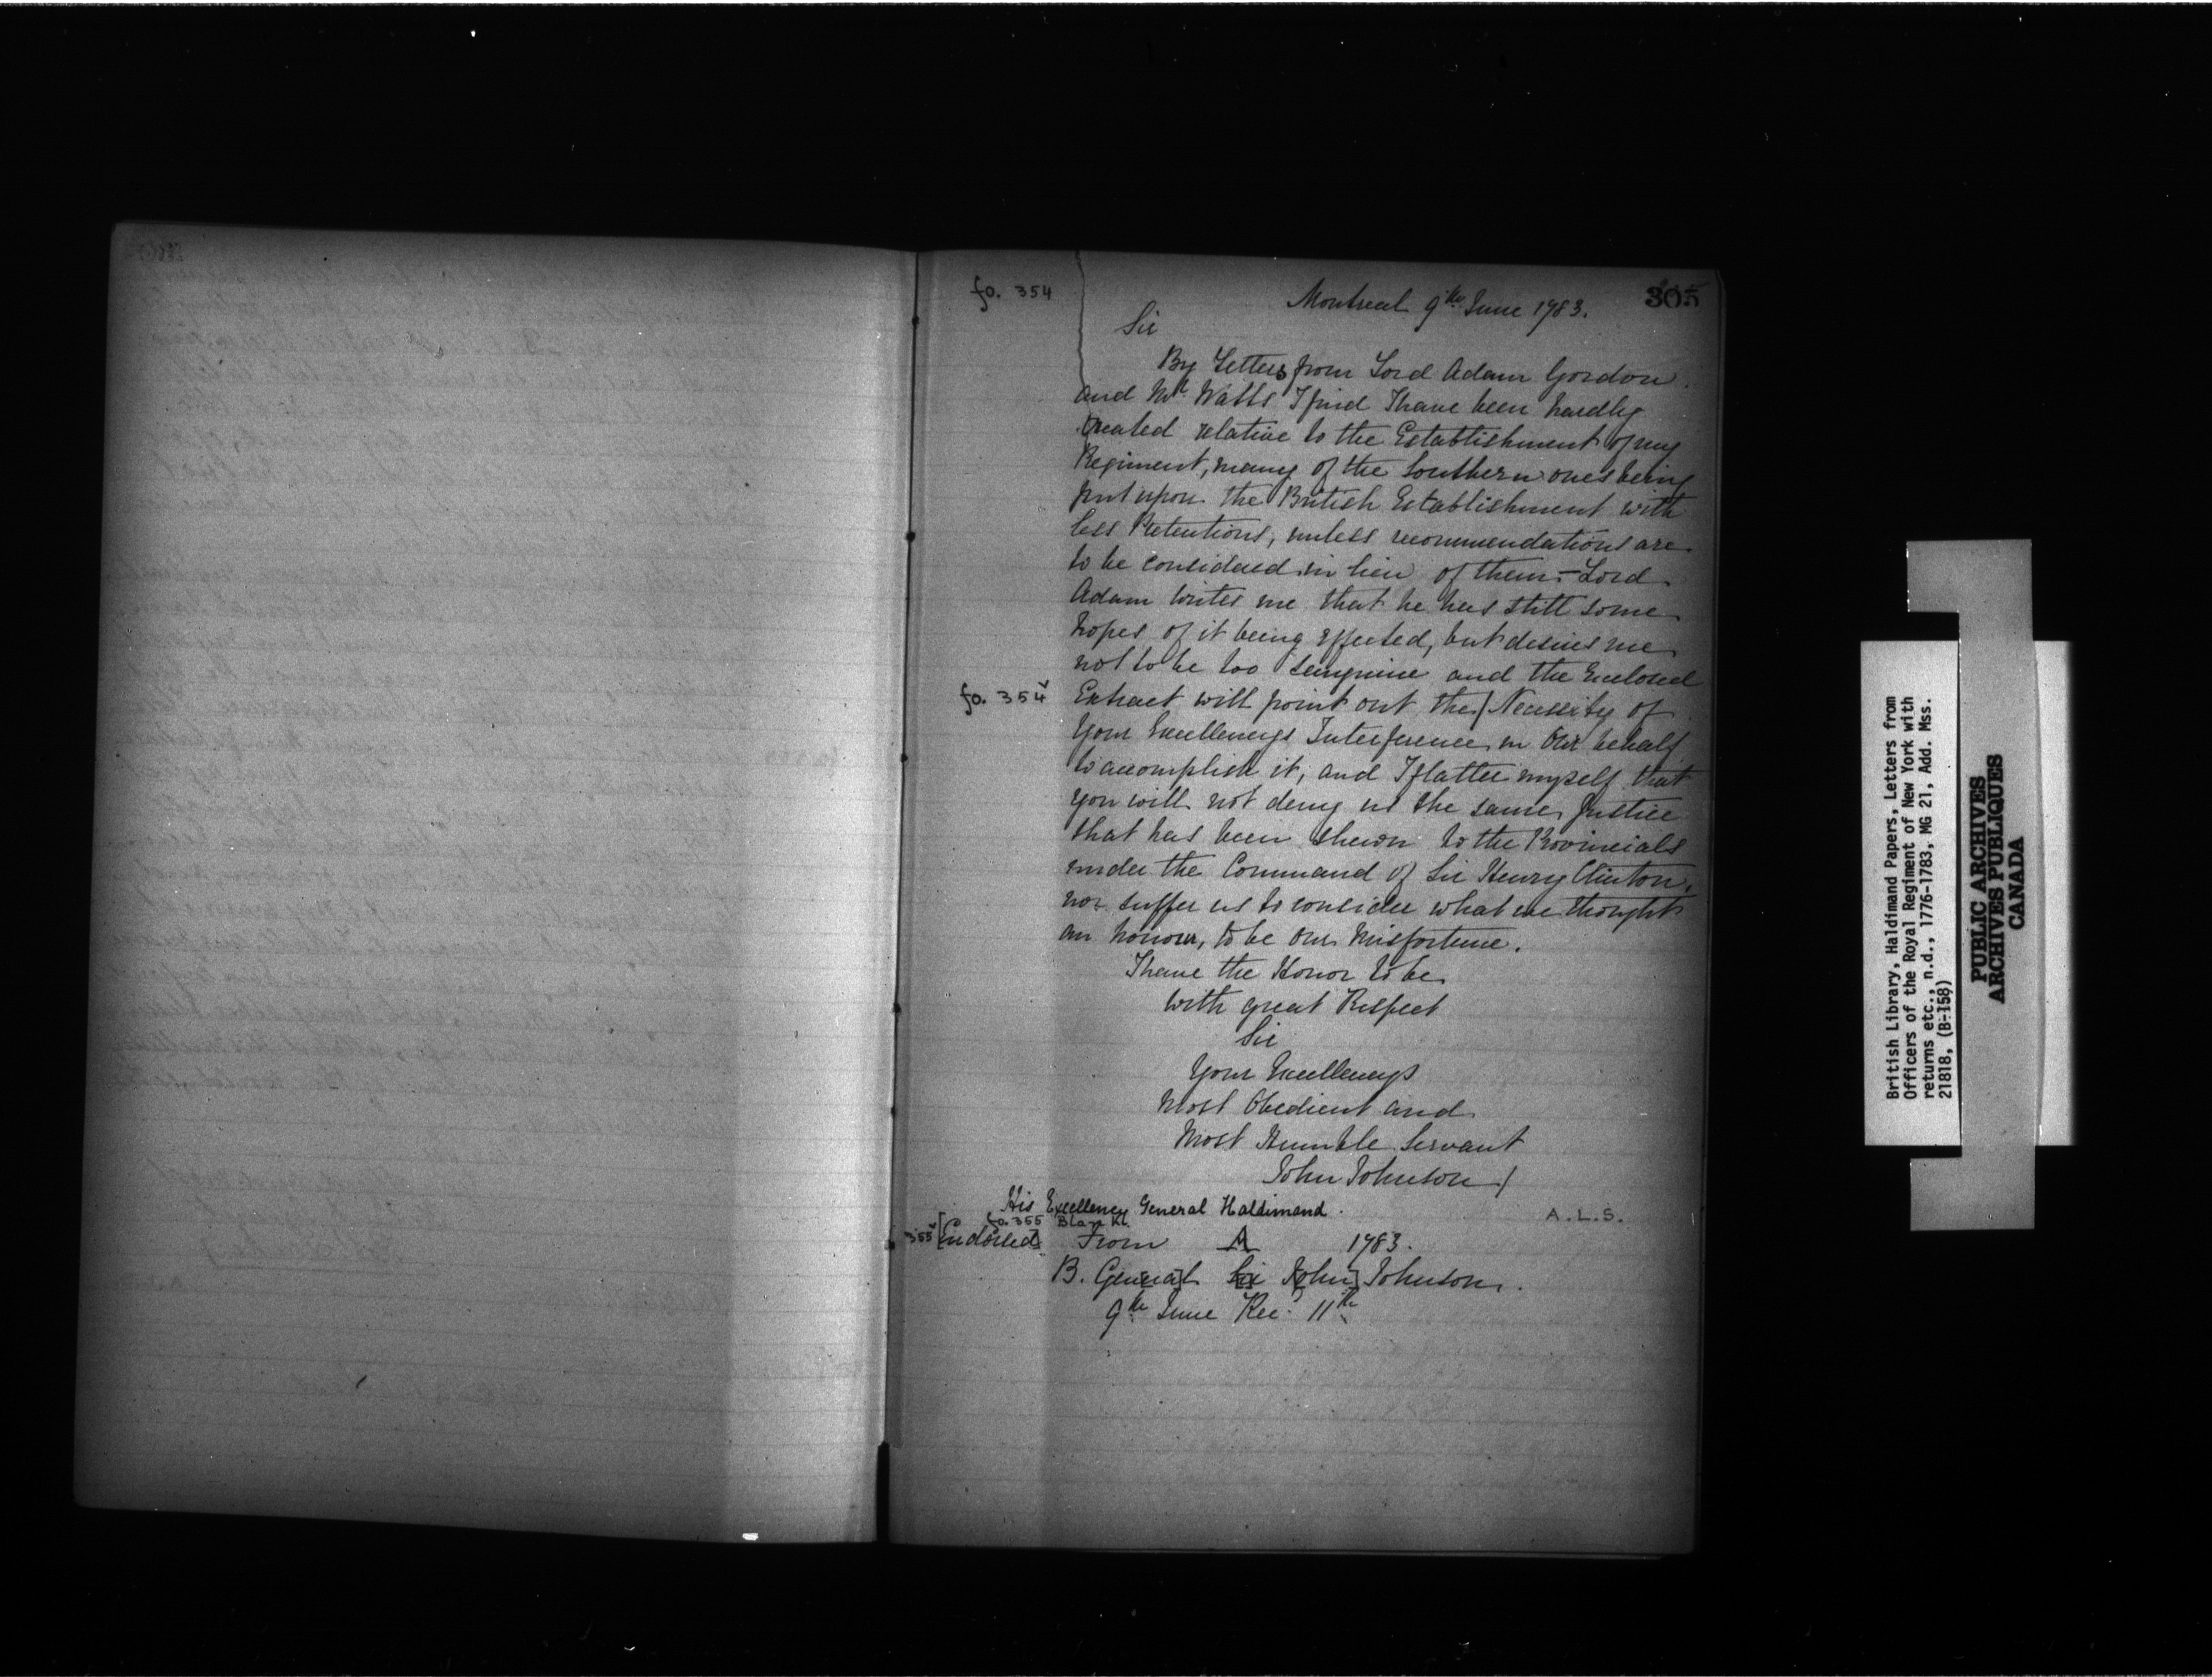 fo. 354
Montreal 9th June 1783.
305
Sir
By Letters from Lord Adam Gordon
and Mr. Watts I find I have been hardly
treated relative to the Establishment of my
Regiment, many of the Southern ones being
put upon the British Establishment with
less Pretentions, unless recommendations are
to be considered in lieu of them. — Lord
Adam writes me that he has still some
hopes of it being effected, but desires me
not to be too sanguine and the Enclosed
fo. 354v
Extract will point out the / Necessity of
Your Excellencys Interference in Our behalf
to accomplish it, and I flatter myself that
you will not deny us the same Justice
that has been shewn to the Provincials
under the Command of Sir Henry Clinton,
nor suffer us to consider what we thought
an honour, to be our Misfortune.
I have the Honor to be
with great Respect
Sir
Your Excellencys
Most Obedient and
Most Humble Servant
John Johnson /
His Excellency General Haldimand.
A.L.S.
fo. 355 Blank
355v [Endorsed] From A 1783.
B. Gen[era]l Sir J[ohn] Johnson.
9th June Rec. 11th
British Library, Haldimand Papers, Letters from
Officers of the Royal Regiment of New York with
returns etc., n.d., 1776-1783, MG 21, Add. Mss.
21818, (B-158)
PUBLIC ARCHIVES
ARCHIVES PUBLIQUES
CANADA